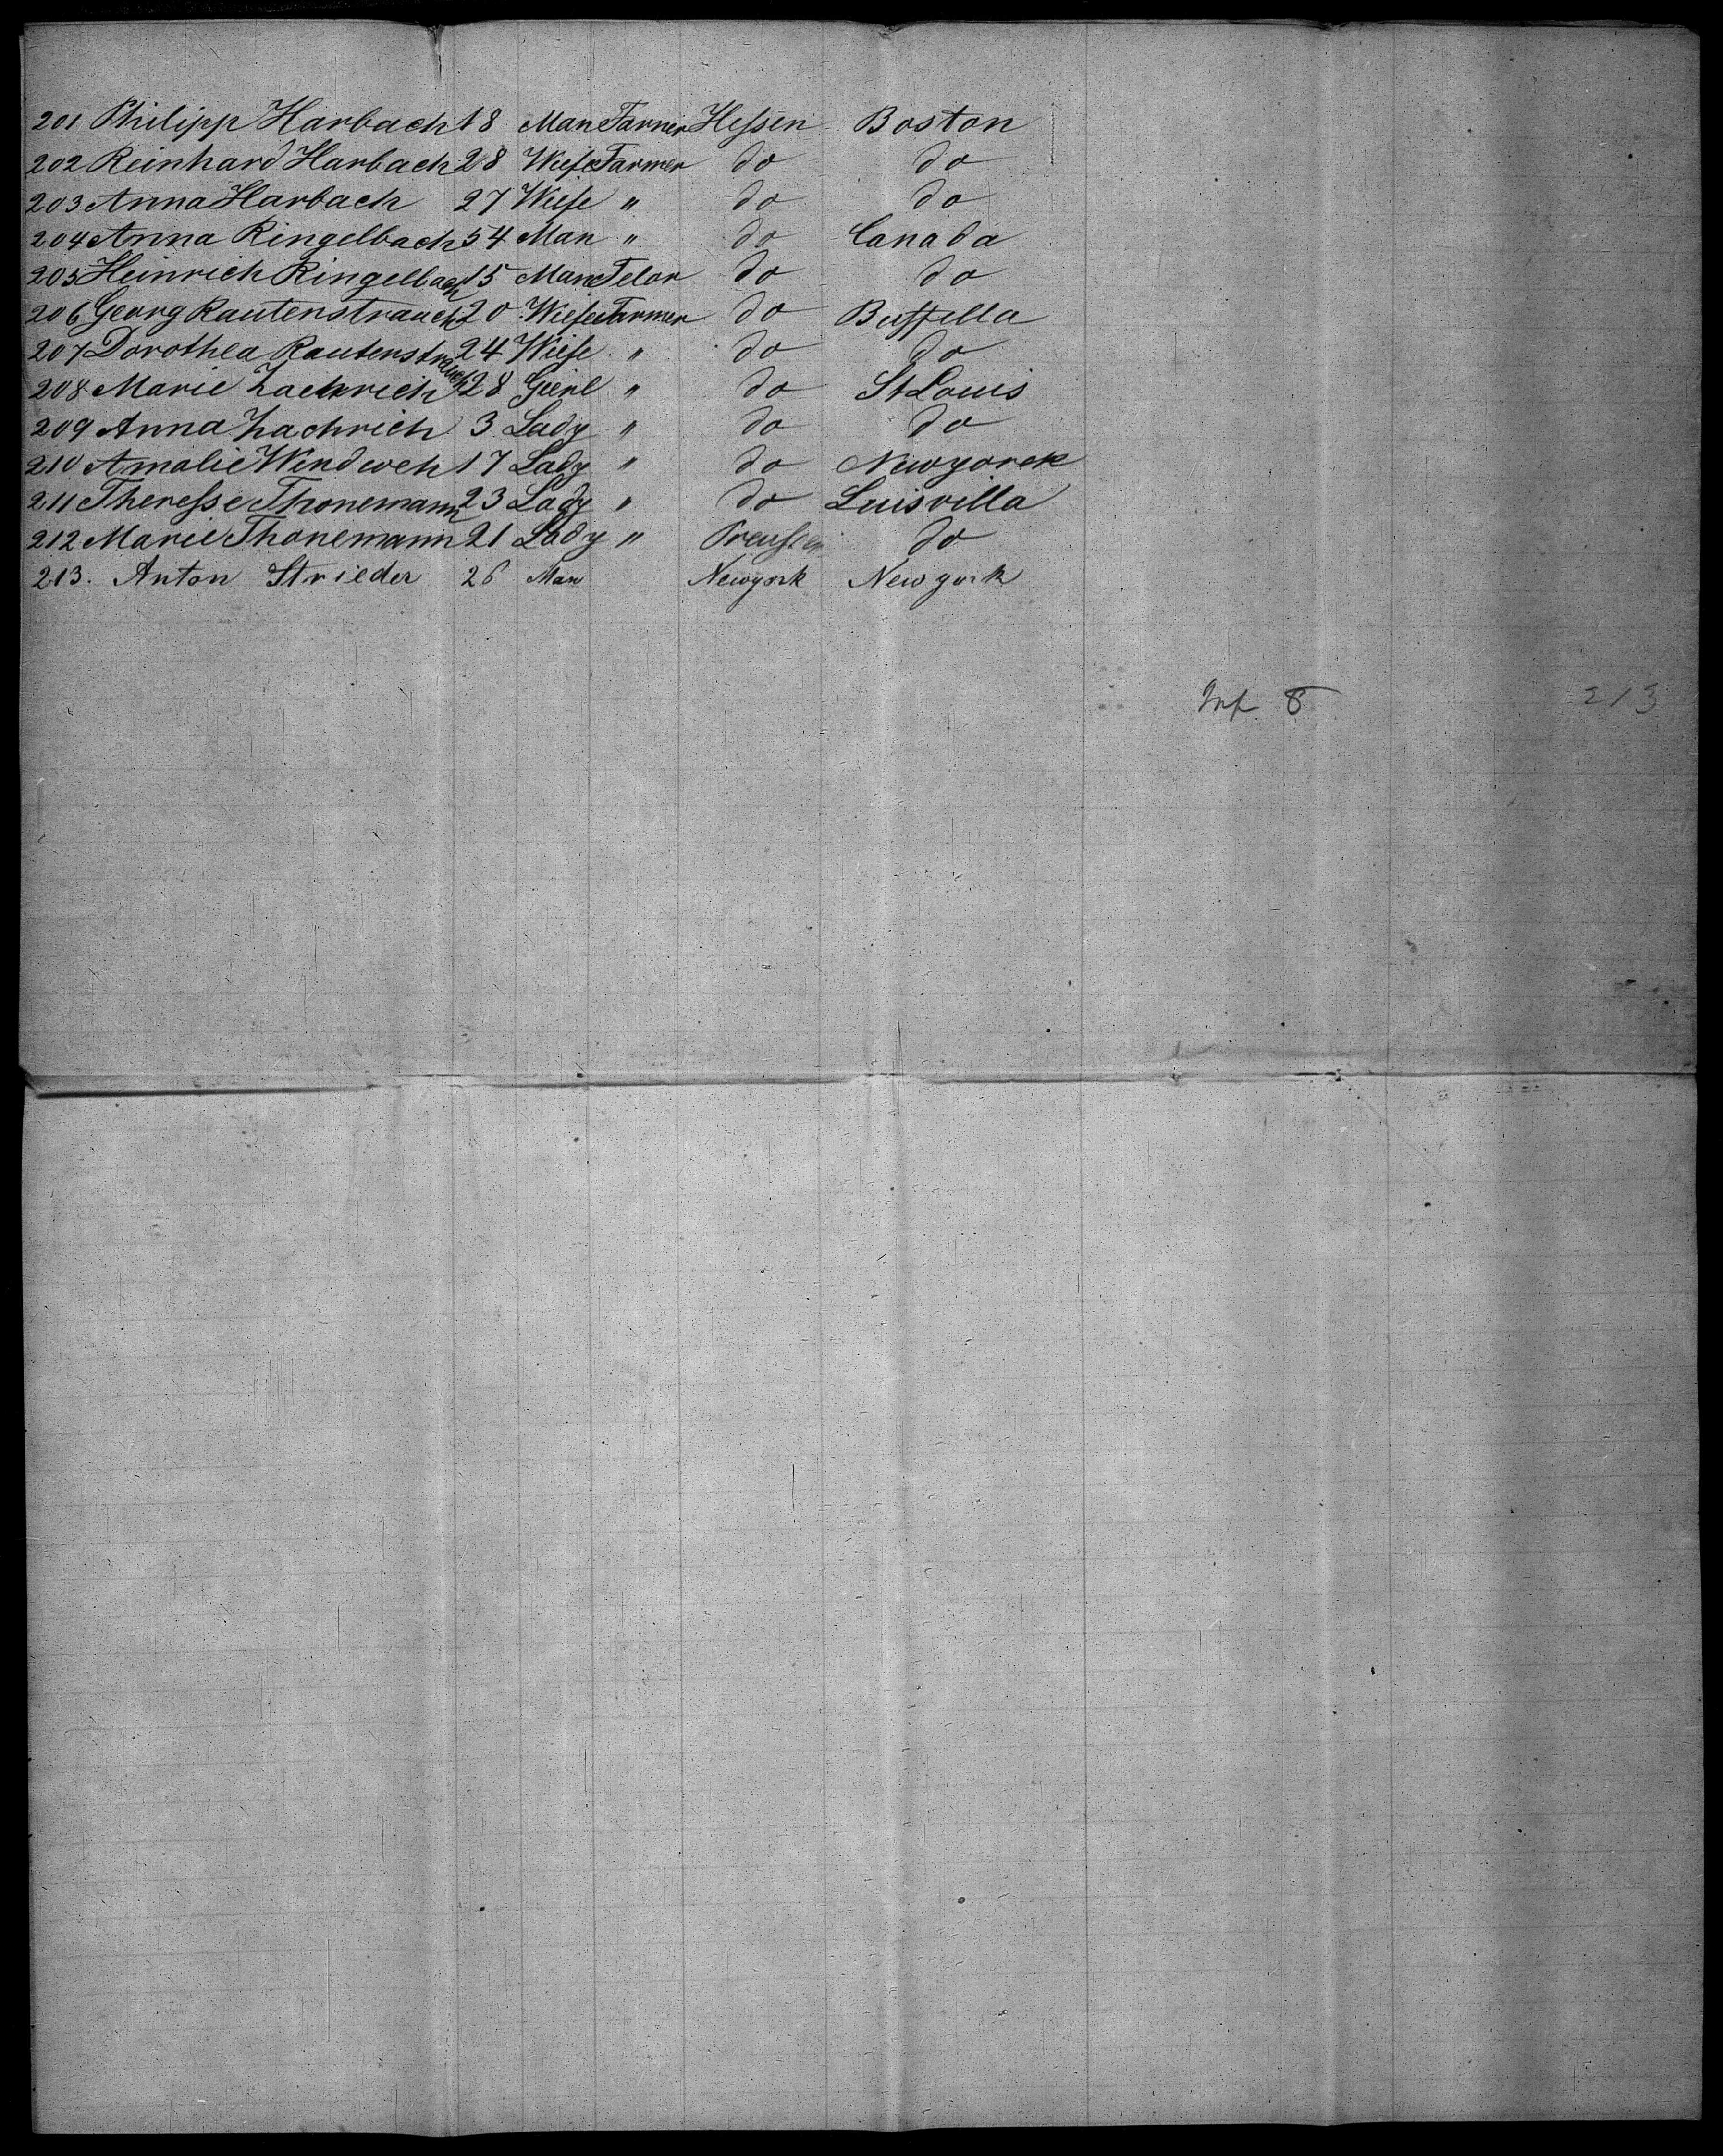 201 Philipp Harbach 18 Man Farmer Hessen Boston
202 Reinhard Harbach 28 Wiefe Farmer do do
203 Anna Harbach 27 Wiefe " do do
204 Anna Ringelbach 54 Man " do Canada
205 Heinrich Ringelbach 15 Man Telor do do
206 Georg Rautenstrauch 20 Wiefe Farmer do Buffella
207 Dorothea Rautenstrauch 24 Wiefe " do do
208 Marie Zachrich 28 Gierl " do St Louis
209 Anna Zachrich 3 Lady " do do
210 Amalie Windweh 17 Lady " do Newyorck
211 Theresse Thonemann 23 Lady " do Luisvilla
212 Marie Thonemann 21 Lady " Preussen do
213. Anton Strieder 26 Man Newyork Newyork
Inf 8 213